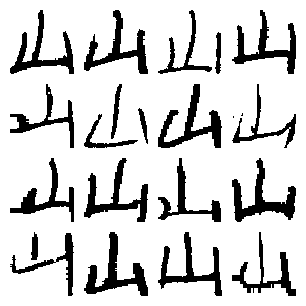 山山山山
山山山山
山山山山
山山山山